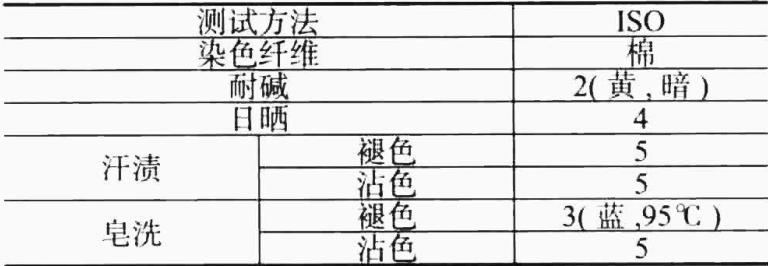 测试方法 ISO
染色纤维 棉
耐碱 2(黄,暗)
日晒 4
汗渍 褪色 5
沾色 5
皂洗 褪色 3(蓝,95℃)
沾色 5